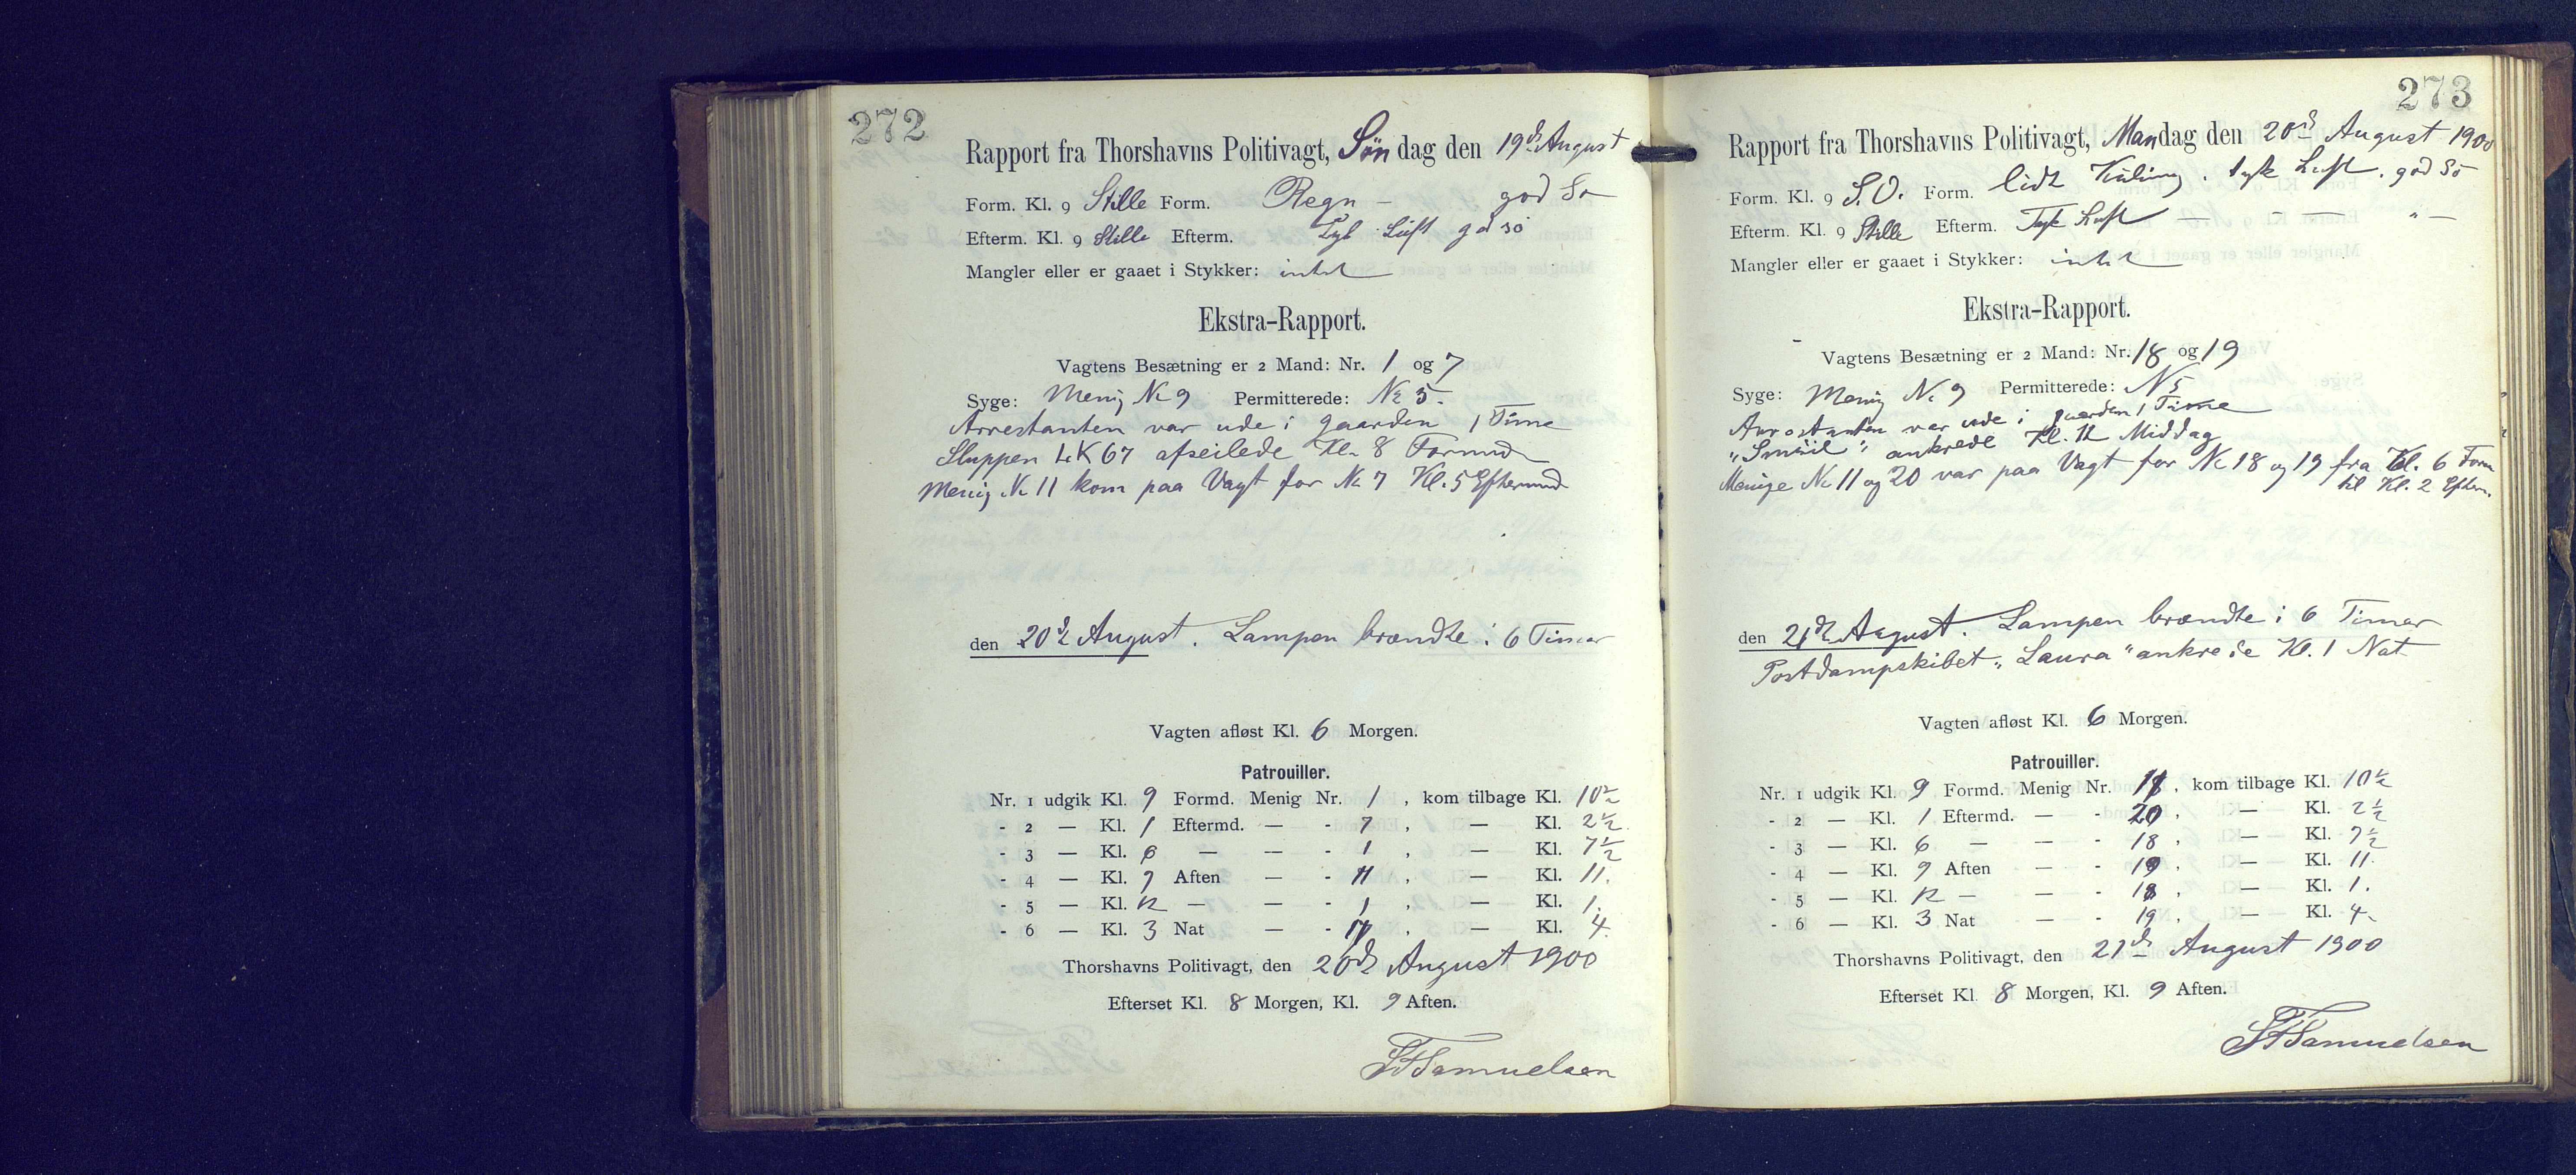 272
Rapport fra Thorshavns Politivagt, Søndag den 19de August
Form. Kl. 9 Stille Form. Regn - god Sø
Efterm. Kl. 9 Stille Efterm. Tyk Luft god sø
Mangler eller er gaaet i Stykker: intet
Ekstra-Rapport.
Vagtens Besætning er 2 Mand: Nr. 1 og 7
Syge: Menig No 9 Permitterede: No 5.
Arrestanten var ude i Gaarden 1 Time
Sluppen LK 67 afseilede Kl. 8 Formd
Menig No 11 kom paa Vagt for No 7 Kl. 5 Eftermd
den 20de August. Lampen brændte i 6 Timer
Vagten afløst Kl. 6 Morgen.
Patrouiller.
Nr. 1 udgik Kl. 9 Formd. Menig Nr. 1, kom tilbage Kl. 10½
- 2 — Kl. 1 Eftermd. — - 7, — Kl. 2½
- 3 — Kl. 6 — — - 1, — Kl. 7½
- 4 — Kl. 9 Aften — - 11, — Kl. 11.
- 5 — Kl. 12 — — - 1, — Kl. 1.
- 6 — Kl. 3 Nat — - 11, — Kl. 4.
Thorshavns Politivagt, den 20de August 1900
Efterset Kl. 8 Morgen, Kl. 9 Aften.
Samuelsen
273
Rapport fra Thorshavns Politivagt, Mandag den 20de August 1900
Form. Kl. 9 S.O. Form. lidt Kuling. tyk Luft. god Sø
Efterm. Kl. 9 Stille Efterm. Tyk Luft — - — " —
Mangler eller er gaaet i Stykker: intet
Ekstra-Rapport.
Vagtens Besætning er 2 Mand: Nr. 18 og 19
Syge: Menig No 9 Permitterede: N 5
Arrestanten var ude i gaarden 1 Time
"Smiril" ankrede Kl. 12 Middag
Menige No 11 og 20 var paa Vagt for No 18 og 19 fra Kl. 6 Form
til Kl. 2 Efterm.
den 21de August. Lampen brændte i 6 Timer
Postdampskibet "Laura" ankrede Kl. 1 Nat
Vagten afløst Kl. 6 Morgen.
Patrouiller.
Nr. 1 udgik Kl. 9 Formd. Menig Nr. 11, kom tilbage Kl. 10½
- 2 — Kl. 1 Eftermd. — - 20, — Kl. 2½
- 3 — Kl. 6 — — - 18, — Kl. 7½
- 4 — Kl. 9 Aften — - 19, — Kl. 11.
- 5 — Kl. 12 — — - 18, — Kl. 1.
- 6 — Kl. 3 Nat — - 19, — Kl. 4.
Thorshavns Politivagt, den 21de August 1900
Efterset Kl. 8 Morgen, Kl. 9 Aften.
Samuelsen